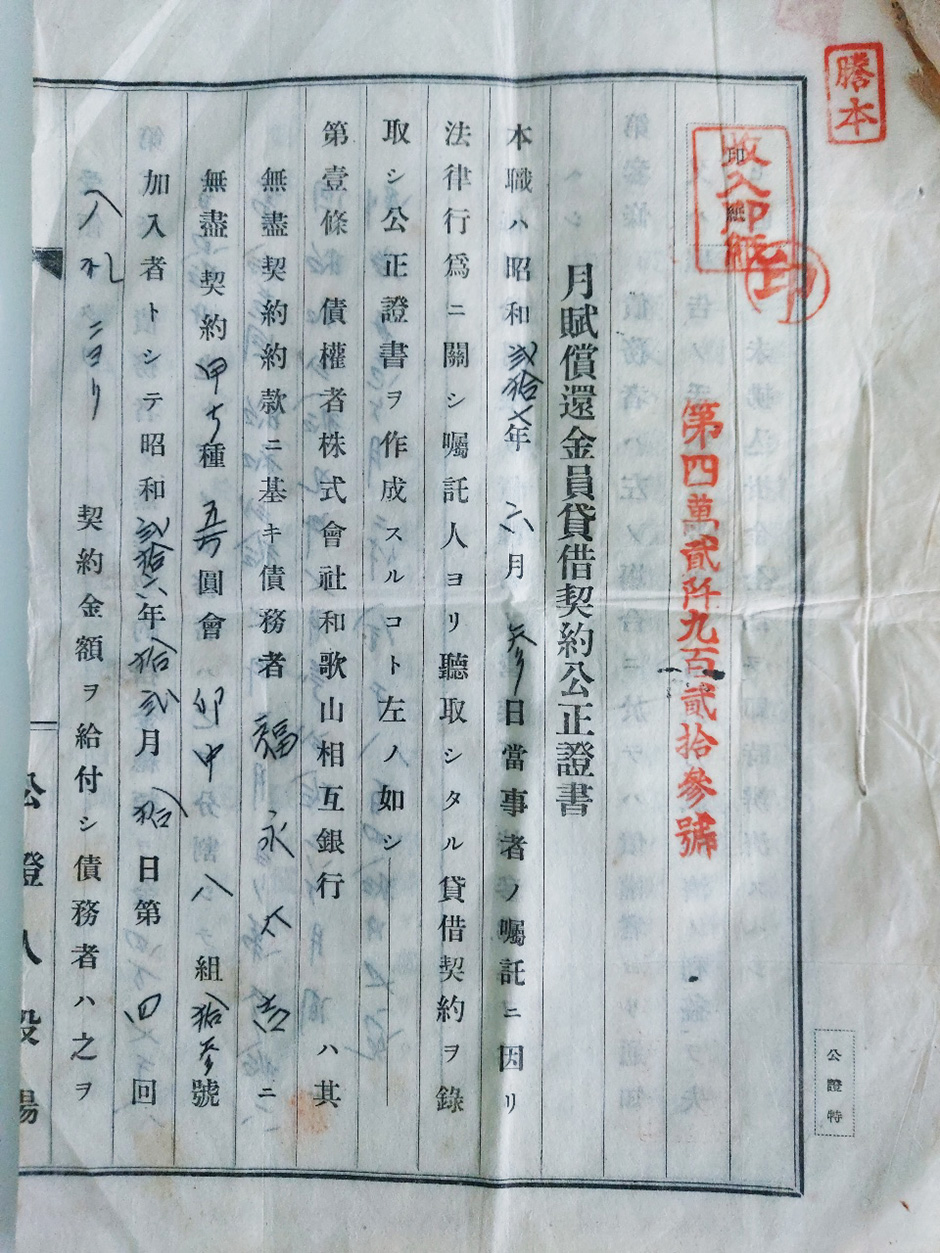 謄本
印紙
收入印紙
印
公證特
第四萬貳阡九百貳拾參號
月賦償還金員貸借契約公正證書
本職ハ昭和貳拾七年六月參日當事者ノ囑託ニ因リ
法律行爲ニ關シ囑託人ヨリ聽取シタル貸借契約ヲ錄
取シ公正證書ヲ作成スルコト左ノ如シ
第壹條 債權者株式會社和歌山相互銀行 ハ其
無盡契約約款ニ基キ債務者 福永太吉ニ
無盡契約甲 種 圓會ハ 分割八組拾參號
加入者トシテ昭和貳拾六年拾貳月拾日第四回
入札ニヨリ 契約金額ヲ給付シ債務者ハ之ヲ
公證人役場